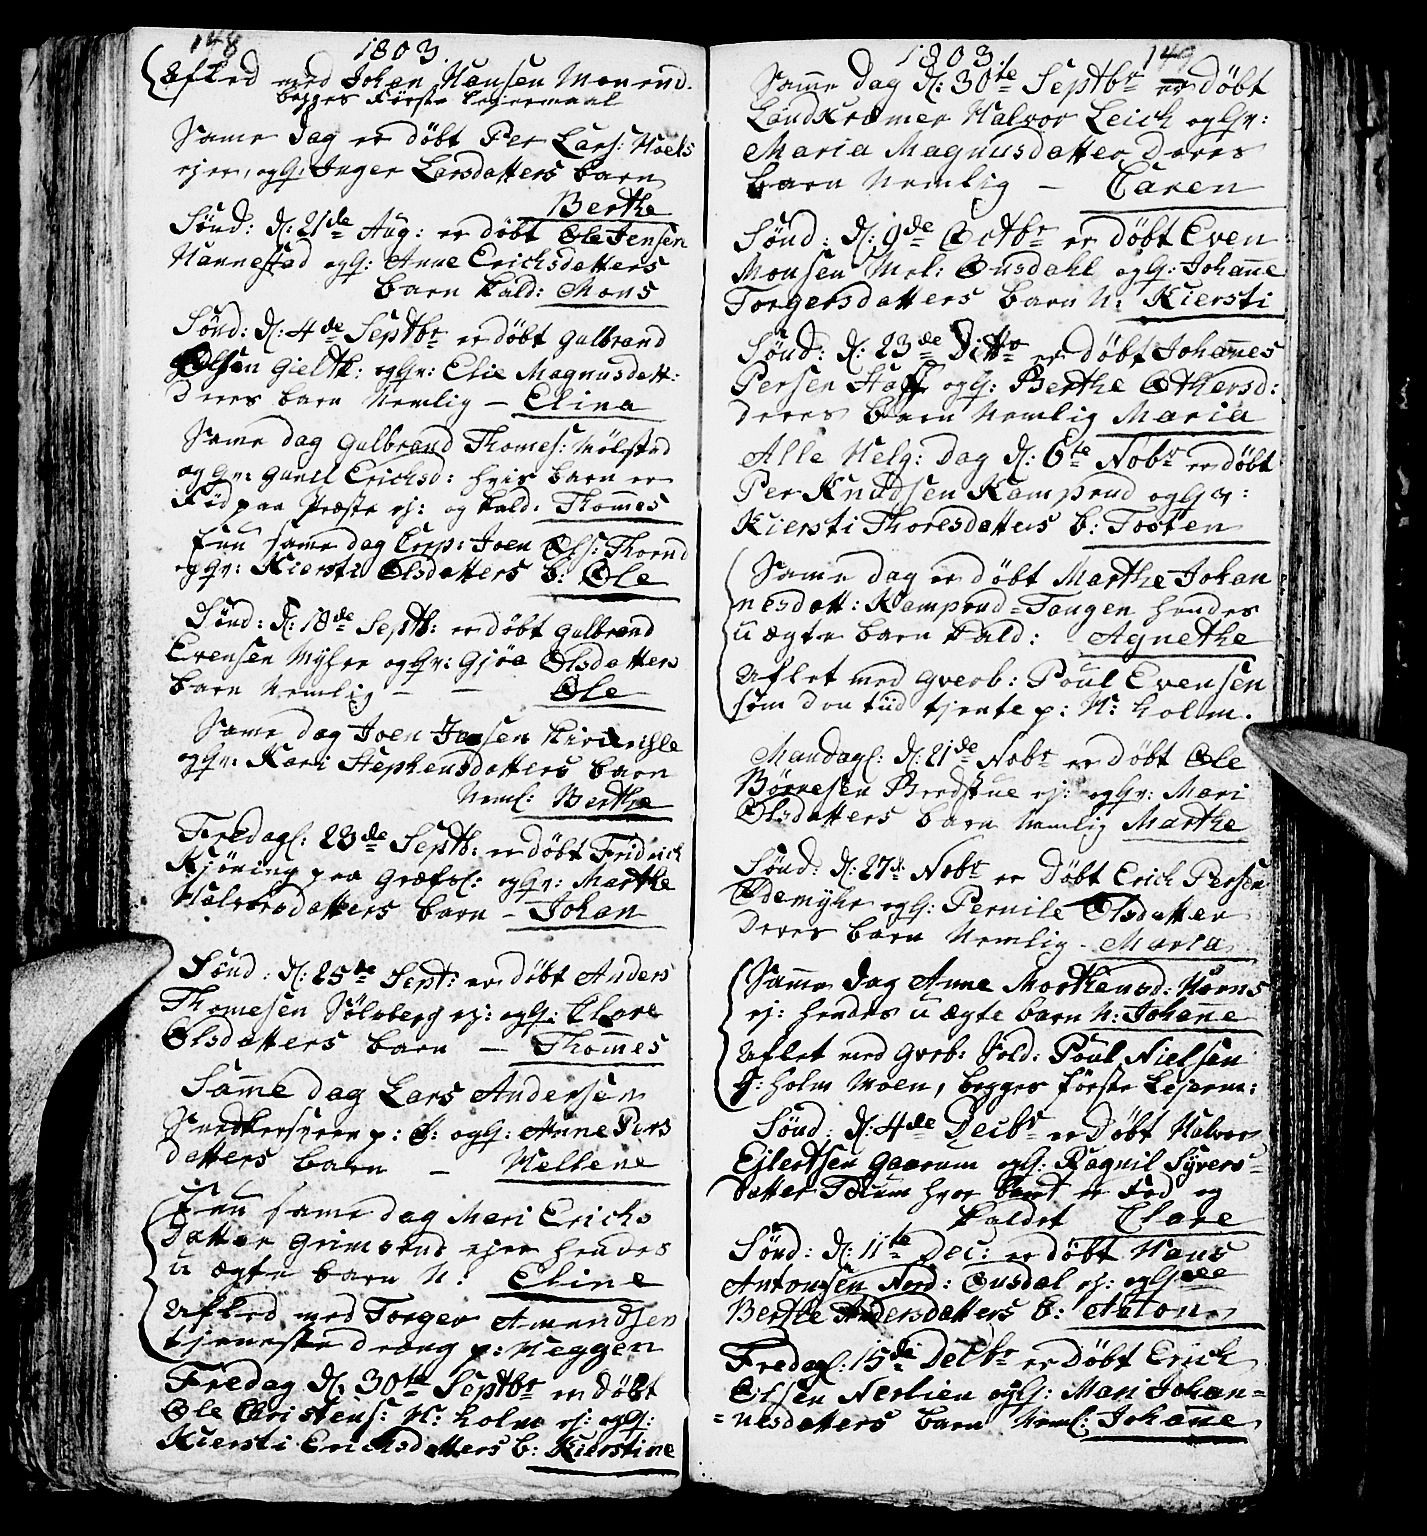 148
1803.
Afled med Johan Hansen Monend.
begges Første Lejermaal
Same dag er døbt Per Lars: Hoels
ejer, og G: Inger Larsdatters barn
Berthe
Sønd: d: 21de Aug: er døbt Ole Jensen
Nannestad og G: Anne Erichsdatters
barn kald: Mons
Sønd: d: 4de Septbr er døbt Gulbrand
Olsen og Gv: Elie Magnusdatt:
deres barn Nemlig – Elina
Same dag Gulbrand Thomes: Mølstad
og Gv: Gunil Erichsd: hvis barn er
Fød paa Præste ej: og kald: Thomes
Enn same dag Corp: Joen Ols: Thorud
og Gv: Kiersti Olsdatters b: Ole
Sønd: d: 18de Septb: er døbt Gulbrand
Evensen Myhre og Gv: Gjøa Olsdatters
barn Nemlig – – Ole
Same dag Joen Jansen
og Gv: Kari Stephensdatters barn
Neml: Berthe
Fredagl: 23de Septb: er døbt Fridrich
Kjøning paa Græfsl: og Gv: Marthe
Halvorsdatters barn – Johan
Sønd: d: 25de Sept: er døbt Anders
Thomesen Sølvberg ej: og G: Clare
Olsdatters barn – Thomes
Samme dag Lars Andersen
p: E: og G: Anne Pers
datters barn – Hellene
Enn same dag Mari Erichs
datter Grimsrud ejer hendes
u ægte barn N: Eline
Afled med Torger Amundsen
tjeneste dreng p: Heggen
Fredag d: 30te Septbr er døbt
Ole Christens: N: Holm ej: og G:
Kiersti Erichsdatters b: Kierstine
1803.
149
Same dag d: 30te Septbr er døbt
Landkræmer Halvor Leich og Gv:
Maria Magnusdatter deres
barn Nemlig – Caren
Sønd: d: 9de Octbr er døbt Even
Monsen Mel: Ousdahl og G: Johanne
Torgersdatters barn N: Kiersti
Sønd: d: 23de Ditto er døbt Johannes
Persen Staff og G: Berthe Othersd:
deres barn Nemlig Maria
Alle Helg: dag d: 6te Nobr er døbt
Per Knudsen Kamprud og Gv:
Kiersti Thoresdatters b: Tosten
Same dag er døbt Marthe Johan
nesdatt: Kamprud-Tangen hendes
u ægte barn kald: Agnethe
Aflet med Gverb: Poul Evensen
som den tiid tjente p: N: Holm.
Mandagl: d: 21de Nobr er døbt Ole
Børresen Bredstue ej: og Gv: Mari
Olsdatters barn Nemlig Marthe
Sønd: d: 27d: Nobr er døbt Erich Persen
Ødemyhr og G: Pernile Olsdatter
deres barn Nemlig – Maria
Same dag Anne Morthensd: Horns
ej: hendes u ægte barn N: Johanne
Aflet med Gverb: Sold: Poul Nielsen
G: Holm Moen, begges første Lejerm:
Sønd: d: 4de Decbr er døbt Halvor
Ejlertsen Gaarum og G: Ragnil Syvers-
datter hvor barnet er Fød og
kaldet Clare
Sønd: d: 11te Dec: er døbt Hans
Antonsen Nord: Ousdal ej: og G
Berthe Andersdatters b: Anton
Fredagl: 15de Decbr er døbt Erich
Olsen Nerlien og G: Mari Johan=
=nesdatters barn Neml: Johanne